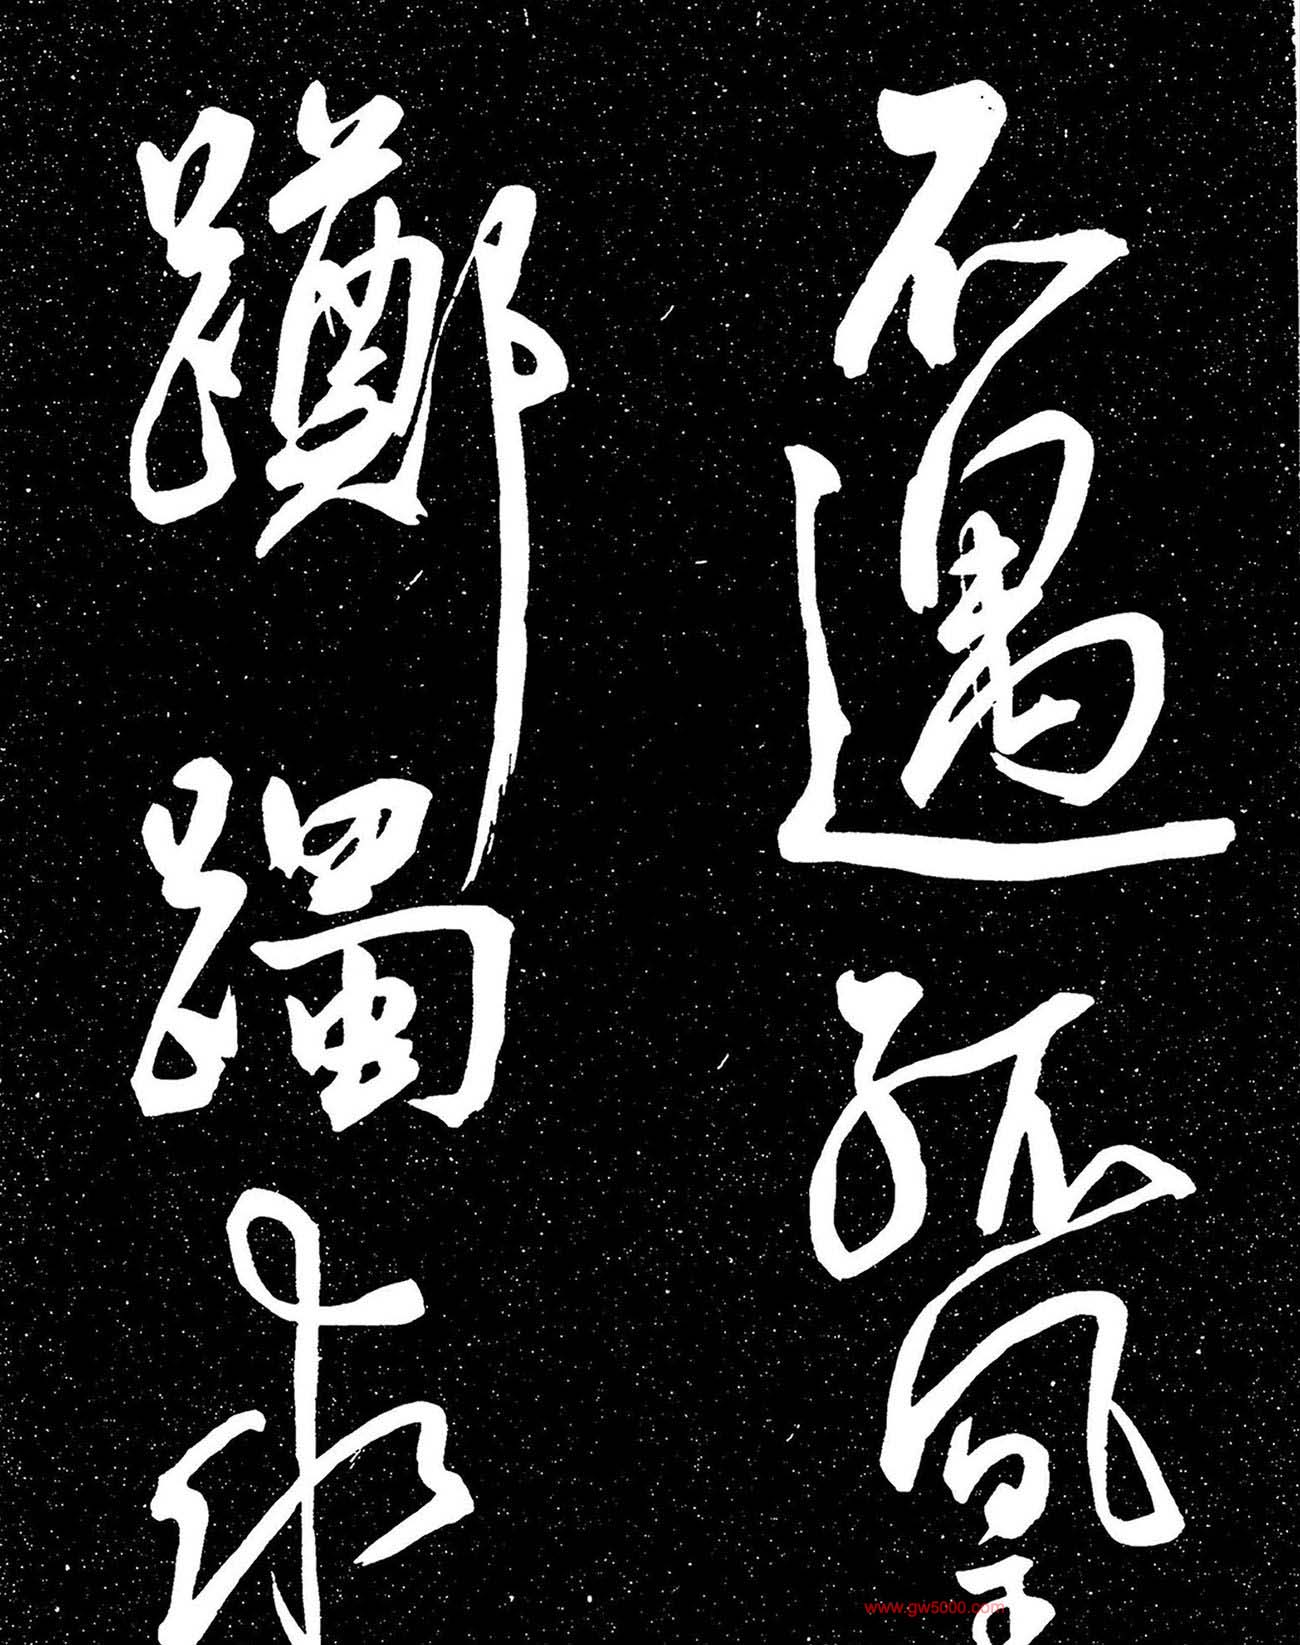 不遇孤凰
躑躅求
www.gw5000.com